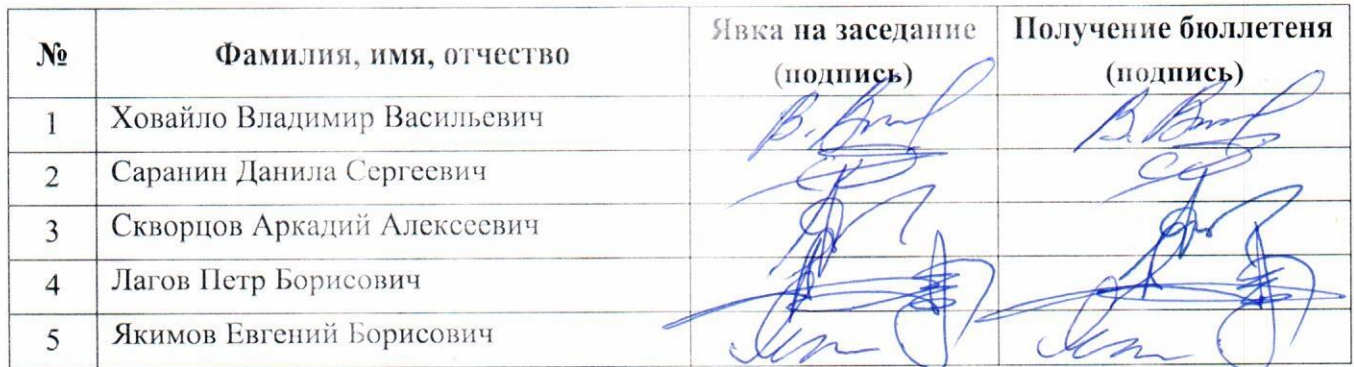 № Фамилия, имя, отчество Явка на заседание (подпись) Получение бюллетеня (подпись)
1 Ховайло Владимир Васильевич
2 Саранин Данила Сергеевич
3 Скворцов Аркадий Алексеевич
4 Лагов Петр Борисович
5 Якимов Евгений Борисович